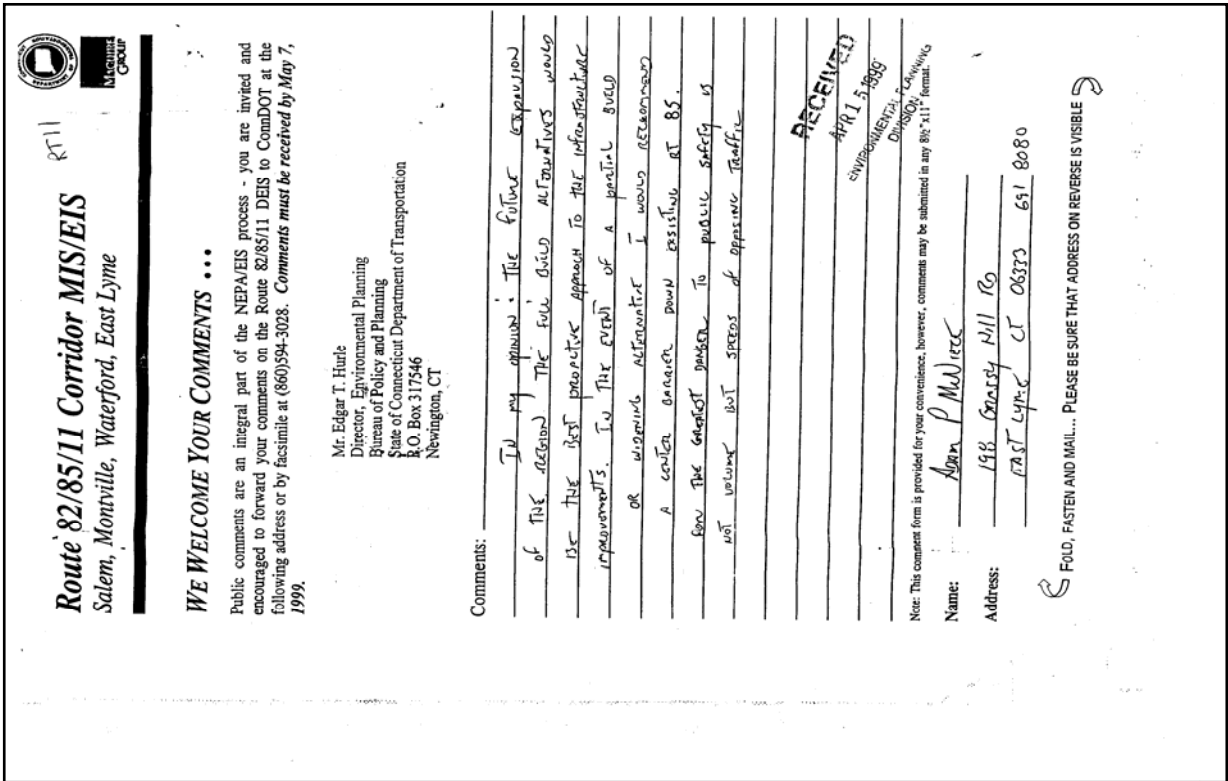 Route 82/85/11 Corridor MIS/EIS
RT11
Salem, Montville, Waterford, East Lyme
MAGUIRE
GROUP
WE WELCOME YOUR COMMENTS ...
Public comments are an integral part of the NEPA/EIS process - you are invited and
encouraged to forward your comments on the Route 82/85/11 DEIS to ConnDOT at the
following address or by facsimile at (860)594-3028. Comments must be received by May 7,
1999.
Mr. Edgar T. Hurle
Director, Environmental Planning
Bureau of Policy and Planning
State of Connecticut Department of Transportation
P.O. Box 317546
Newington, CT
Comments:
IN MY OPINION THE FUTURE EXPANSION
OF THE REGION THE FULL BUILD ALTERNATIVES WOULD
BE THE BEST PROACTIVE APPROACH TO THE INFRASTRUCTURE
IMPROVEMENTS. IN THE EVENT OF A PARTIAL BUILD
OR WIDENING ALTERNATIVE I WOULD RECOMMEND
A CENTER BARRIER DOWN EXSISTING RT 85.
FOR THE GREATEST DANGER TO PUBLIC SAFETY IS
NOT VOLUME BUT SPEEDS OF OPPOSING TRAFFIC
RECEIVED
APR 15 1999
ENVIRONMENTAL PLANNING
DIVISION
Note: This comment form is provided for your convenience, however, comments may be submitted in any 8½"x11" format.
Name: Adam P
Address: 198 Grassy Hill Rd
EAST Lyme CT 06333 691 8080
FOLD, FASTEN AND MAIL... PLEASE BE SURE THAT ADDRESS ON REVERSE IS VISIBLE